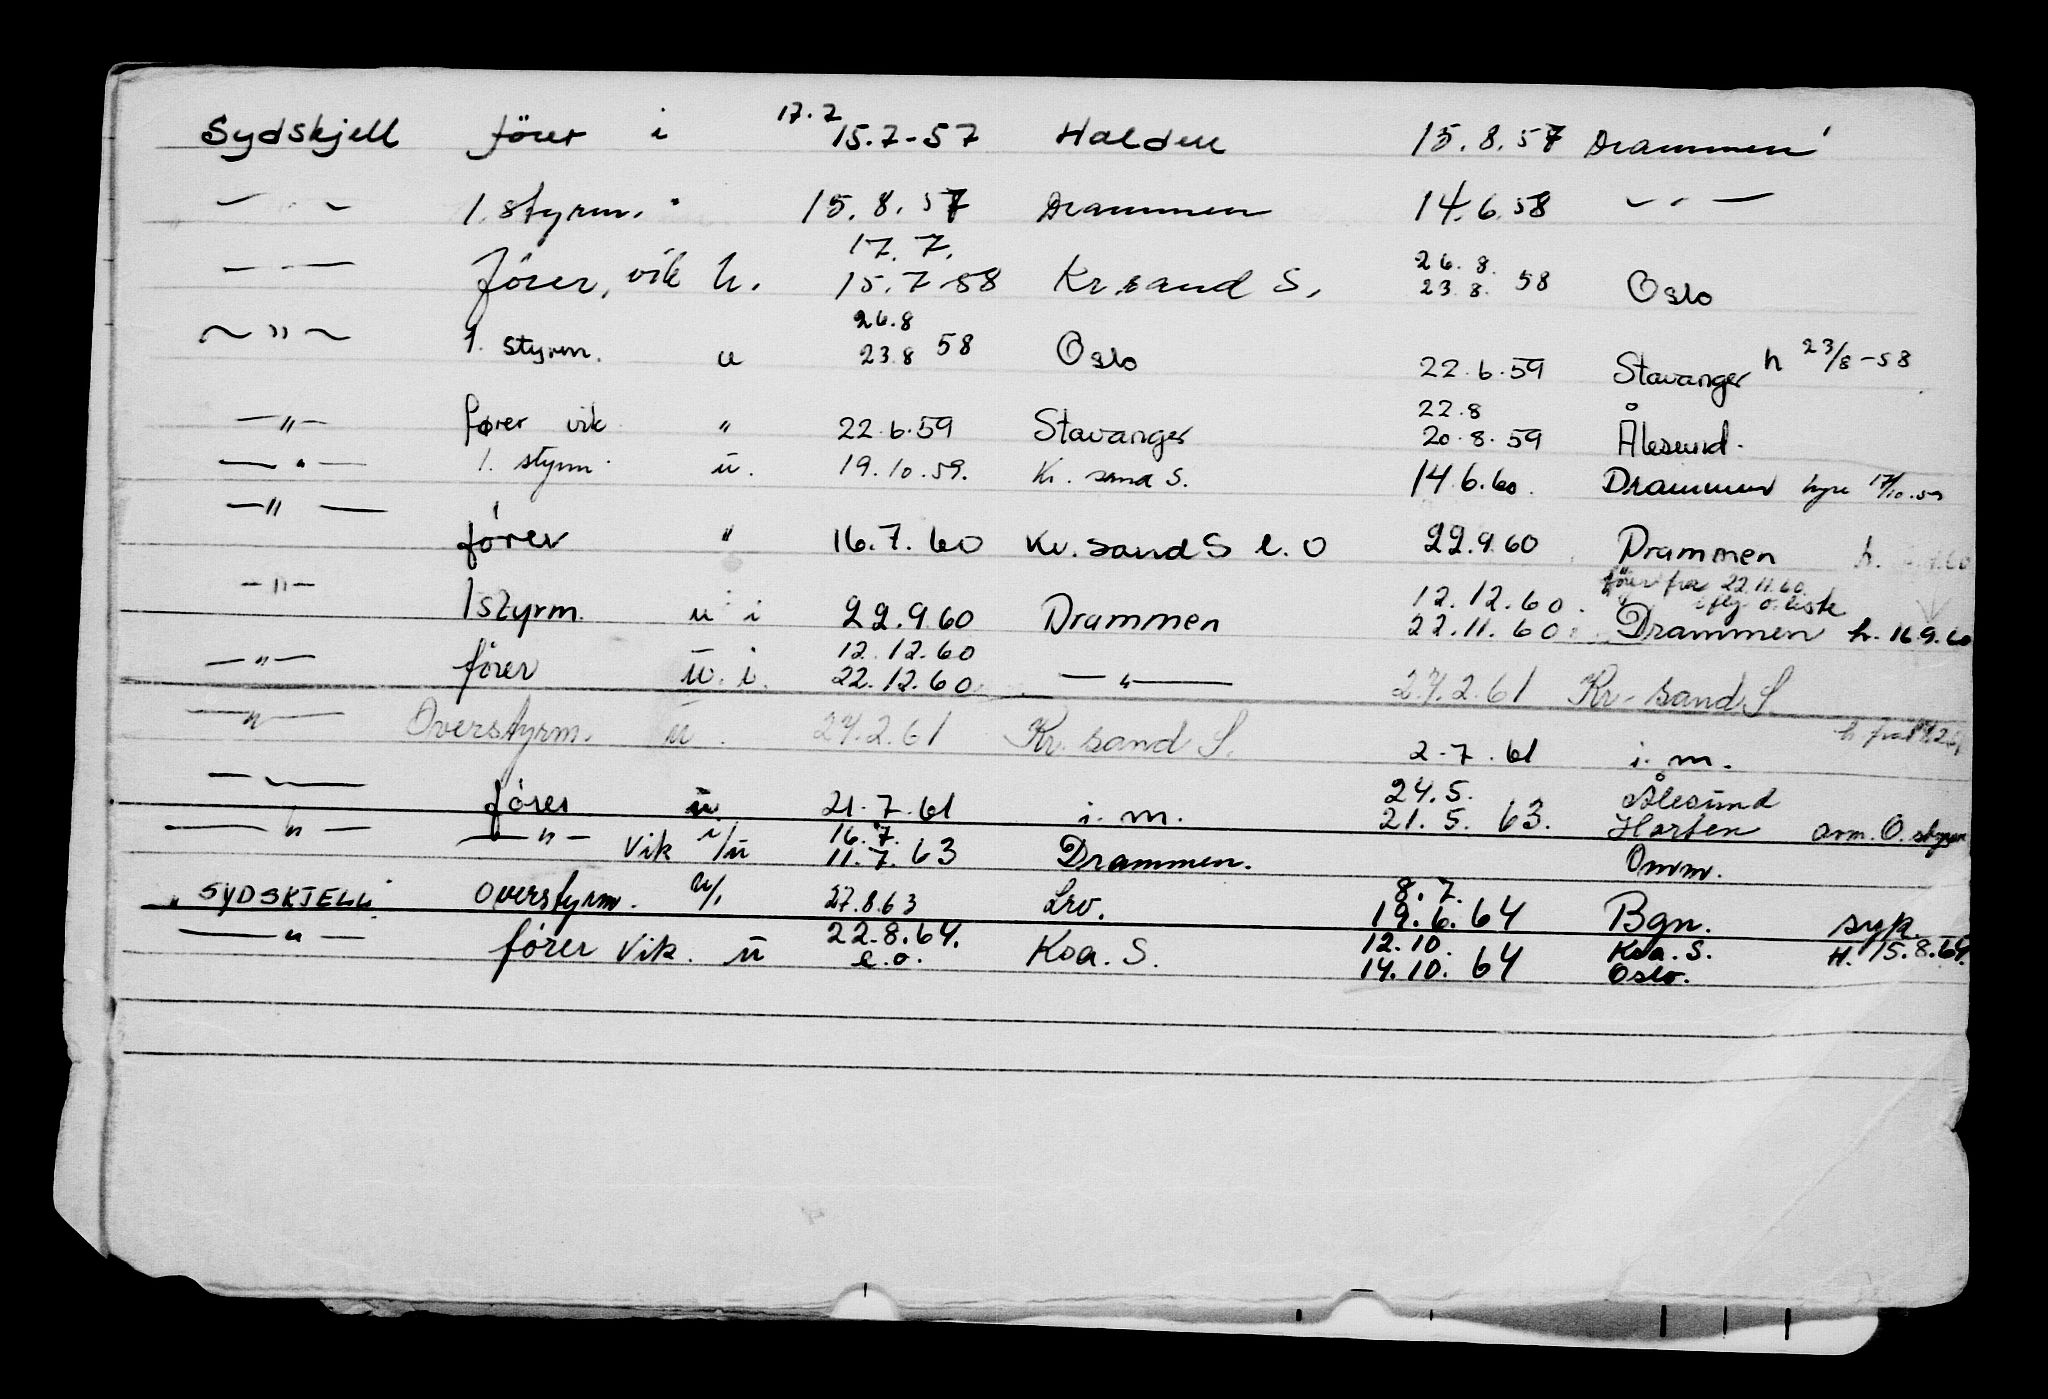 17.7
Sydskjell förer i 15.7-57 Halden 15.8.57 Drammen
— " — 1. styrm. " 15.8.57 Drammen 14.6.58 — " —
17.7. 26.8.
— " — förer, vik u. 15.7.58 Kr.sand S, 23.8. 58 Oslo
26.8
~ " ~ 1. styrm. u 23.8 58 Oslo 22.6.59 Stavanger h 23/8-58
22.8
— " — fører vik " 22.6.59 Stavanger 20.8.59 Ålesund.
— " — 1. styrm. u. 19.10.59. Kr. sand S. 14.6.60. Drammen hyre 17/10.59
— " — förer " 16.7.60 Kr. sand S e.O 22.9.60 Drammen h.
förer fra 22.11.60
12.12.60. iflg o.liste
— " — 1styrm. u i 22.9.60 Drammen 22.11.60 Drammen h. 16.9.60
12.12.60
— " — förer u. i. 22.12.60 — " — 27.2.61 Kr. sand S.
— " — Overstyrm. u. 27.2.61 Kr. sand S. 2.7.61 i.m. h fra
24.5. Ålesund
— " — förer u 21.7.61 i.m. 21.5.63. Horten avm. O. styrm
16.7.
— " — — " — Vik i/u 11.7.63 Drammen. Omm.
8.7.
SYDSKJELL Overstyrm. u/. 27.8.63 Lrv. 19.6.64 Bgn. syk.
22.8.64. 12.10. Ksa. S.
— " — fører Vik. u e.o. Ksa. S. 14.10.64 Oslo. H. 15.8.64.